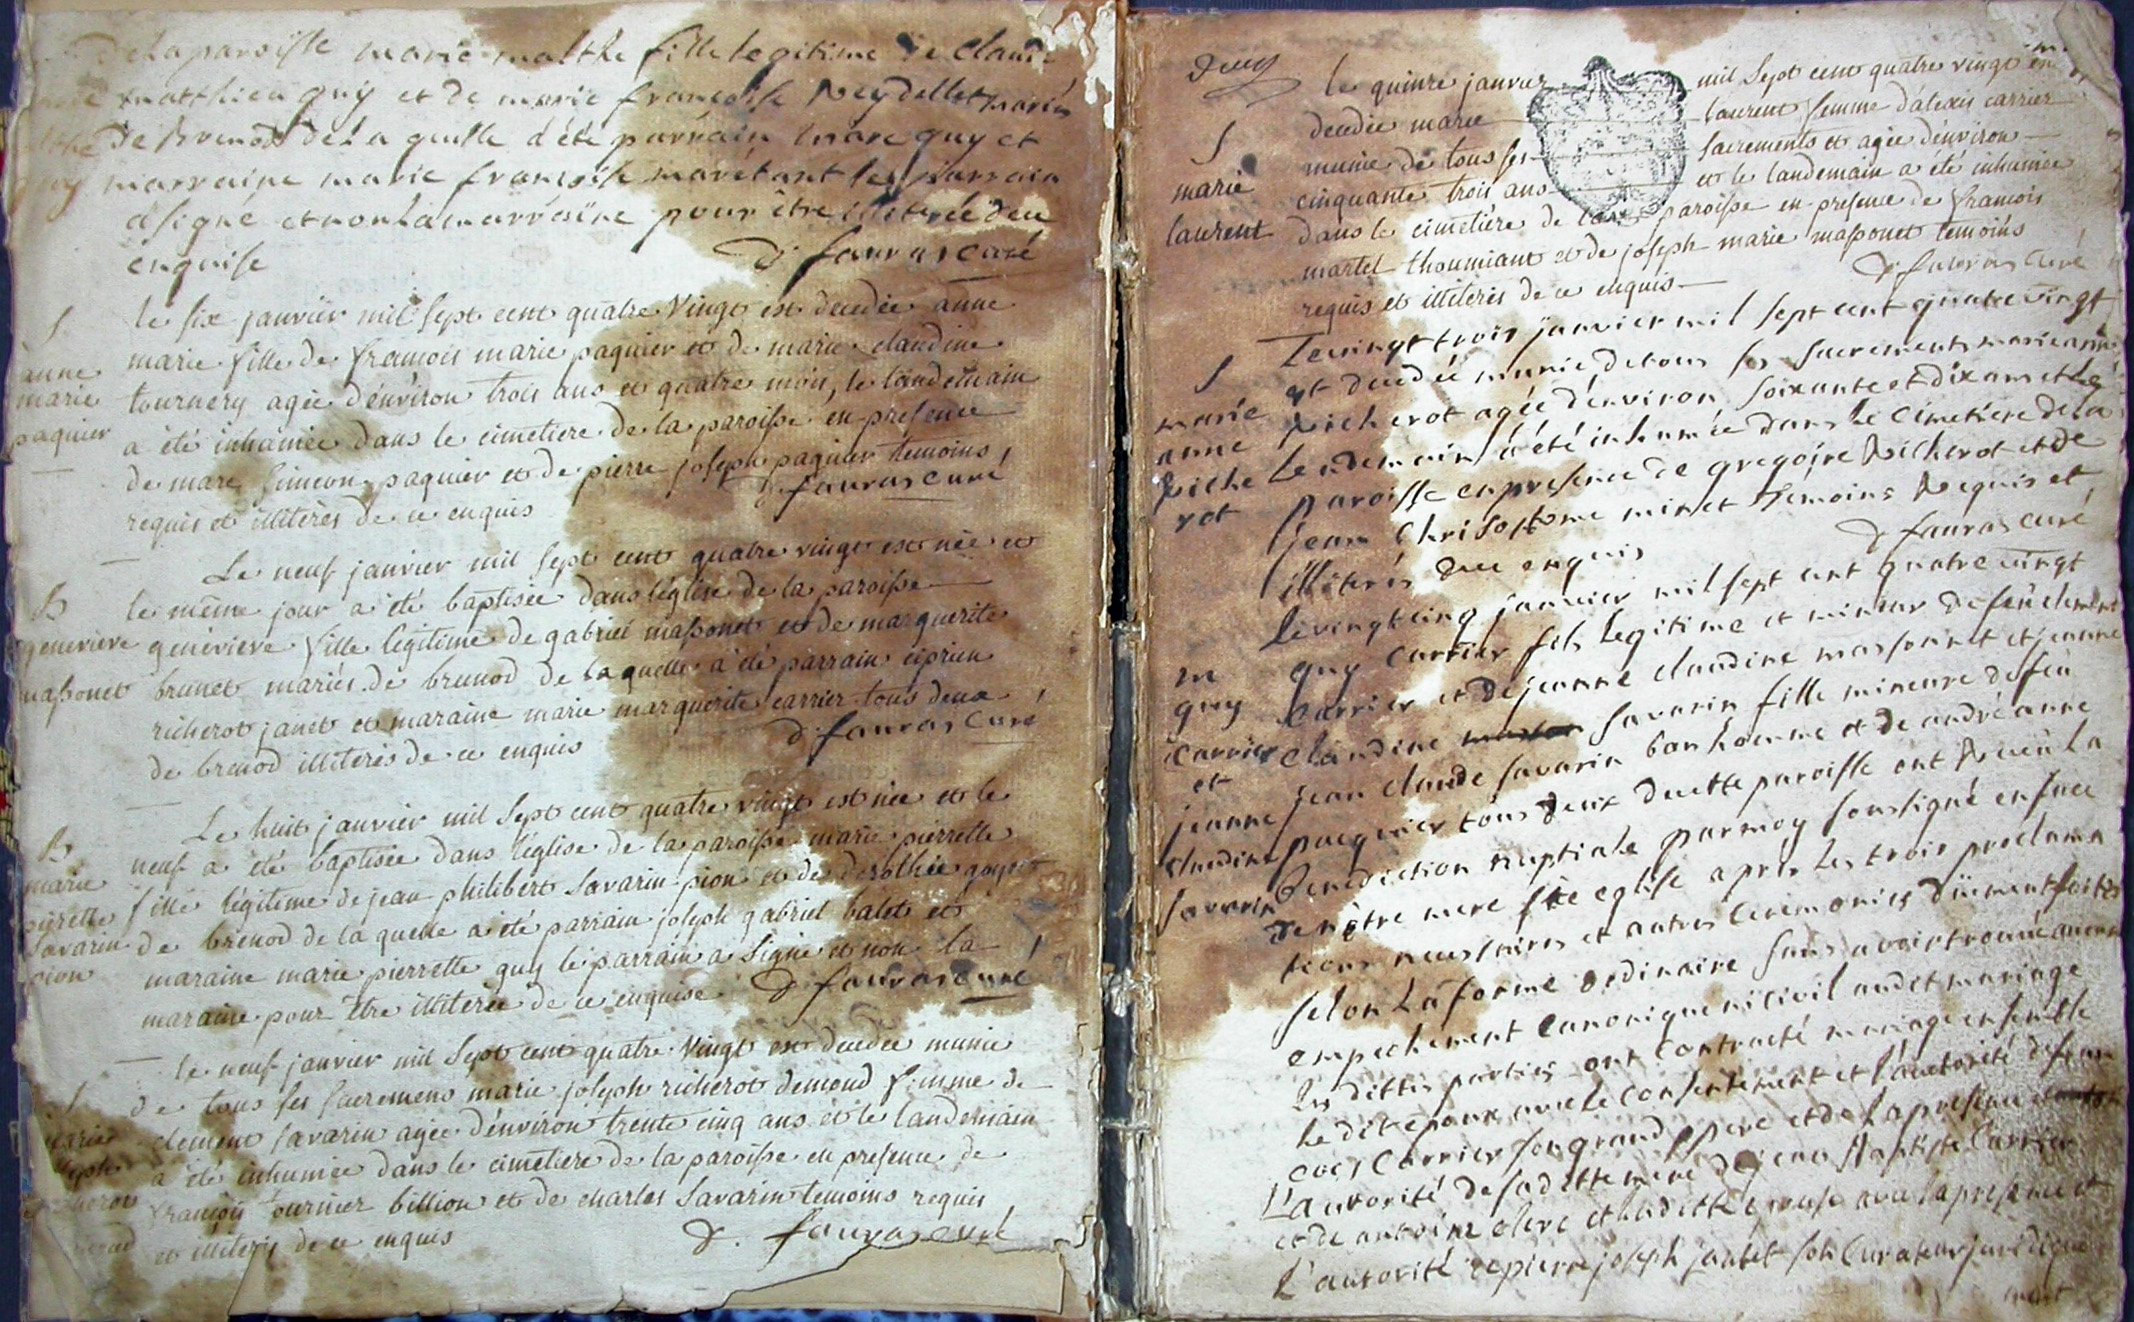 de La paroisse marie malthe fille legitime de claude
matthieu guy et de marie francoise Reydellet mariés
de Brenod de La quelle a été parrain marc guy et
guy marraine marie francoise mare tant le parrain
a signé et non La marraine pour être illiterée de ce
enquise
d. fauras curé
S
anne
marie
paquier
le six janvier mil sept cent quatre vingt est decedée anne
marie fille de francois marie paquier et de marie claudine
tournery agée d'environ trois ans et quatre mois, le landemain
a été inhumée dans le cimetiere de la paroisse en presence
de marc simeon paquier et de pierre joseph paquier temoins
requis et illiterés de ce enquis
d. fauras curé
B
genevieve
massonet
Le neuf janvier mil sept cent quatre vingt est née et
le même jour a été baptisée dans l'église de la paroisse
genévieve fille legitime de gabriel massonet et de marguerite
brunet mariés de brenod de laquelle a été parrain ciprien
richerot janet et maraine marie marguerite carrier tous deux
de brenod illiterés de ce enquis
d. fauras curé
B
marie
pierrette
Savarin
pion
Le huit janvier mil sept cent quatre vingt est née et le
neuf a été baptisée dans l'église de la paroisse marie pierrette
fille légitime de jean philibert Savarin pion et de dorothée guyot
de brenod de la quelle a été parrain joseph gabriel balet et
maraine marie pierrette guy le parrain a signé et non la
maraine pour être illiterée de ce enquise
d. fauras curé
S
marie
joseph
richerot
le neuf janvier mil sept cent quatre vingt est decedée munie
de tous ses sacremens marie joseph richerot demond femme de
clement savarin agée d'environ trente cinq ans et le landemain
a été inhumée dans le cimetiere de la paroisse en presence de
francois tournier billion et de charles Savarin temoins requis
et illiterés de ce enquis
d. fauras curé
deux
S
marie
laurent
le quinze janvier mil sept cent quatre vingt est
decedée marie laurent femme d'alexis carrier
munie de tous ses sacrements et agée d'environ
cinquante trois ans et le landemain a été inhumée
dans le cimetière de la paroisse en presence de francois
martel thoumiant et de joseph marie massonet temoins
requis et illiterés de ce enquis
d. fauras curé
S
marie
anne
Riche
rot
Le vingt trois janvier mil sept cent quatre vingt
est decedée munie de tous ses sacrements marie anne
Richerot agée d'environ soixante et dix ans et Le
Lendemain a été inhumée dans Le cimetiere de La
paroisse en presence de gregoire Richerot et de
jean Chrisostome minet temoins Requis et
illiterés de ce enquis
d. fauras curé
m
guy
carrier
et
jeanne
claudine
savarin
le vingt cinq janvier mil sept cent quatre vingt
guy carrier fils Legitime et mineur de feu clement
carrier et de jeanne claudine massonnet et jeanne
claudine savarin fille mineure de feu
jean claude savarin bonhomme et de andré anne
pacquier tous deux de cette paroisse ont Recu La
Benediction nuptiale par moy soussigné en face
de nôtre mere ste eglise apres Les trois proclama
tions necessaires et autres ceremonies düment faites
selon La forme ordinaire sans avoir trouvé aucun
empechement canonique ni civil audit mariage
Les dittes parties ont contracté mariage ensemble
Le dit epoux avec Le consentement et l'autorité de
Carrier son grand pere et de La presence
L'autorité de sa ditte mere de jean Baptiste Carrier
et de antoine clerc et La ditte epouse avec la presence et
L'autorité de pierre joseph jantet son Curateur juridique
ment